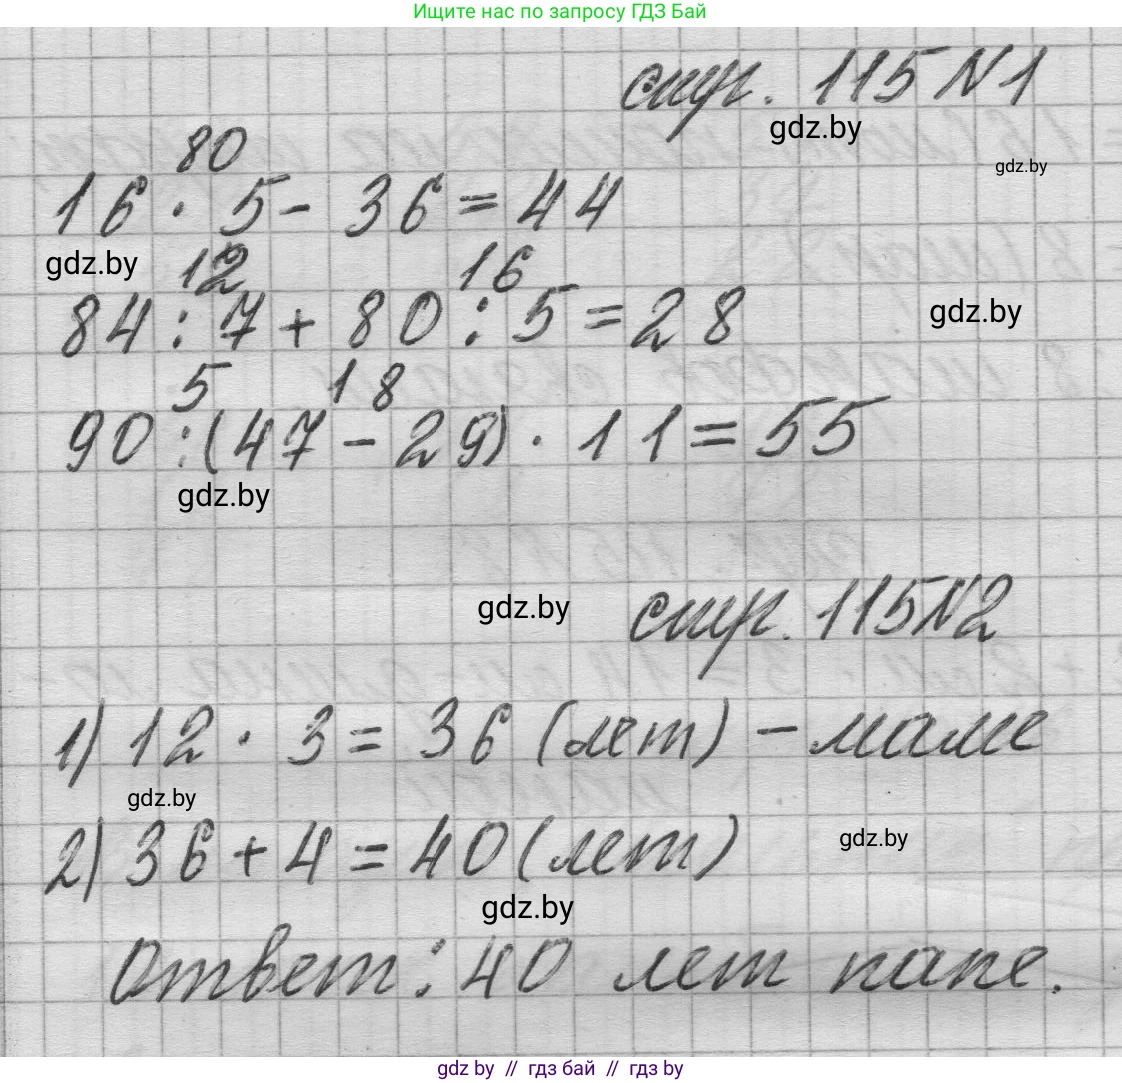 Ищите нас по запросу ГДЗ Бай
стр. 115 N1
gdz.by
gdz.by
80
16 · 5 - 36 = 44
gdz.by
12 16
84 : 7 + 80 : 5 = 28
gdz.by
5 18
90 : (47 - 29) · 11 = 55
gdz.by
gdz.by
стр. 115 N2
1) 12 · 3 = 36 (лет) - маме
gdz.by
2) 36 + 4 = 40 (лет)
gdz.by
gdz.by
Ответ: 40 лет папе.
gdz.by // гдз бай // гдз by